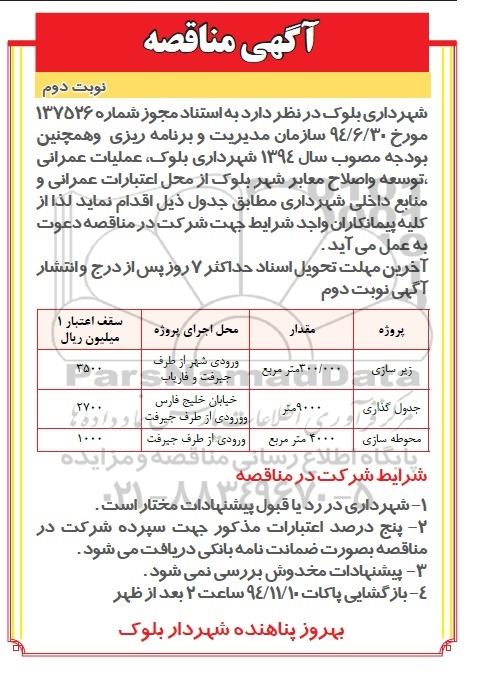 آگهی مناقصه
نوبت دوم
شهرداری بلوک در نظر دارد به استناد مجوز شماره ۱۳۷۵۲۶
مورخ ۹۴/۶/۳۰ سازمان مدیریت و برنامه ریزی وهمچنین
بودجه مصوب سال ۱۳۹۴ شهرداری بلوک، عملیات عمرانی
،توسعه واصلاح معابر شهر بلوک از محل اعتبارات عمرانی و
منابع داخلی شهرداری مطابق جدول ذیل اقدام نماید لذا از
کلیه پیمانکاران واجد شرایط جهت شرکت در مناقصه دعوت
به عمل می آید .
آخرین مهلت تحویل اسناد حداکثر ۷ روز پس از درج و انتشار
آگهی نوبت دوم
پروژه مقدار محل اجرای پروژه سقف اعتبار ۱ میلیون ریال
زیر سازی ۳۰۰/۰۰۰متر مربع ورودی شهر از طرف جیرفت و فاریاب ۳۵۰۰
جدول گذاری ۹۰۰۰متر خیابان خلیج فارس وورودی از طرف جیرفت ۲۷۰۰
محوطه سازی ۴۰۰۰ متر مربع ورودی از طرف جیرفت ۱۰۰۰
ParsNamadData
پایگاه اطلاع رسانی مناقصه و مزایده
۰۲۱-۸۸۳۴۹۶۷۰-۵
شرایط شرکت در مناقصه
۱- شهرداری در رد یا قبول پیشنهادات مختار است .
۲- پنج درصد اعتبارات مذکور جهت سپرده شرکت در
مناقصه بصورت ضمانت نامه بانکی دریافت می شود .
۳- پیشنهادات مخدوش بررسی نمی شود .
۴- بازگشایی پاکات ۹۴/۱۱/۱۰ ساعت ۲ بعد از ظهر
بهروز پناهنده شهردار بلوک